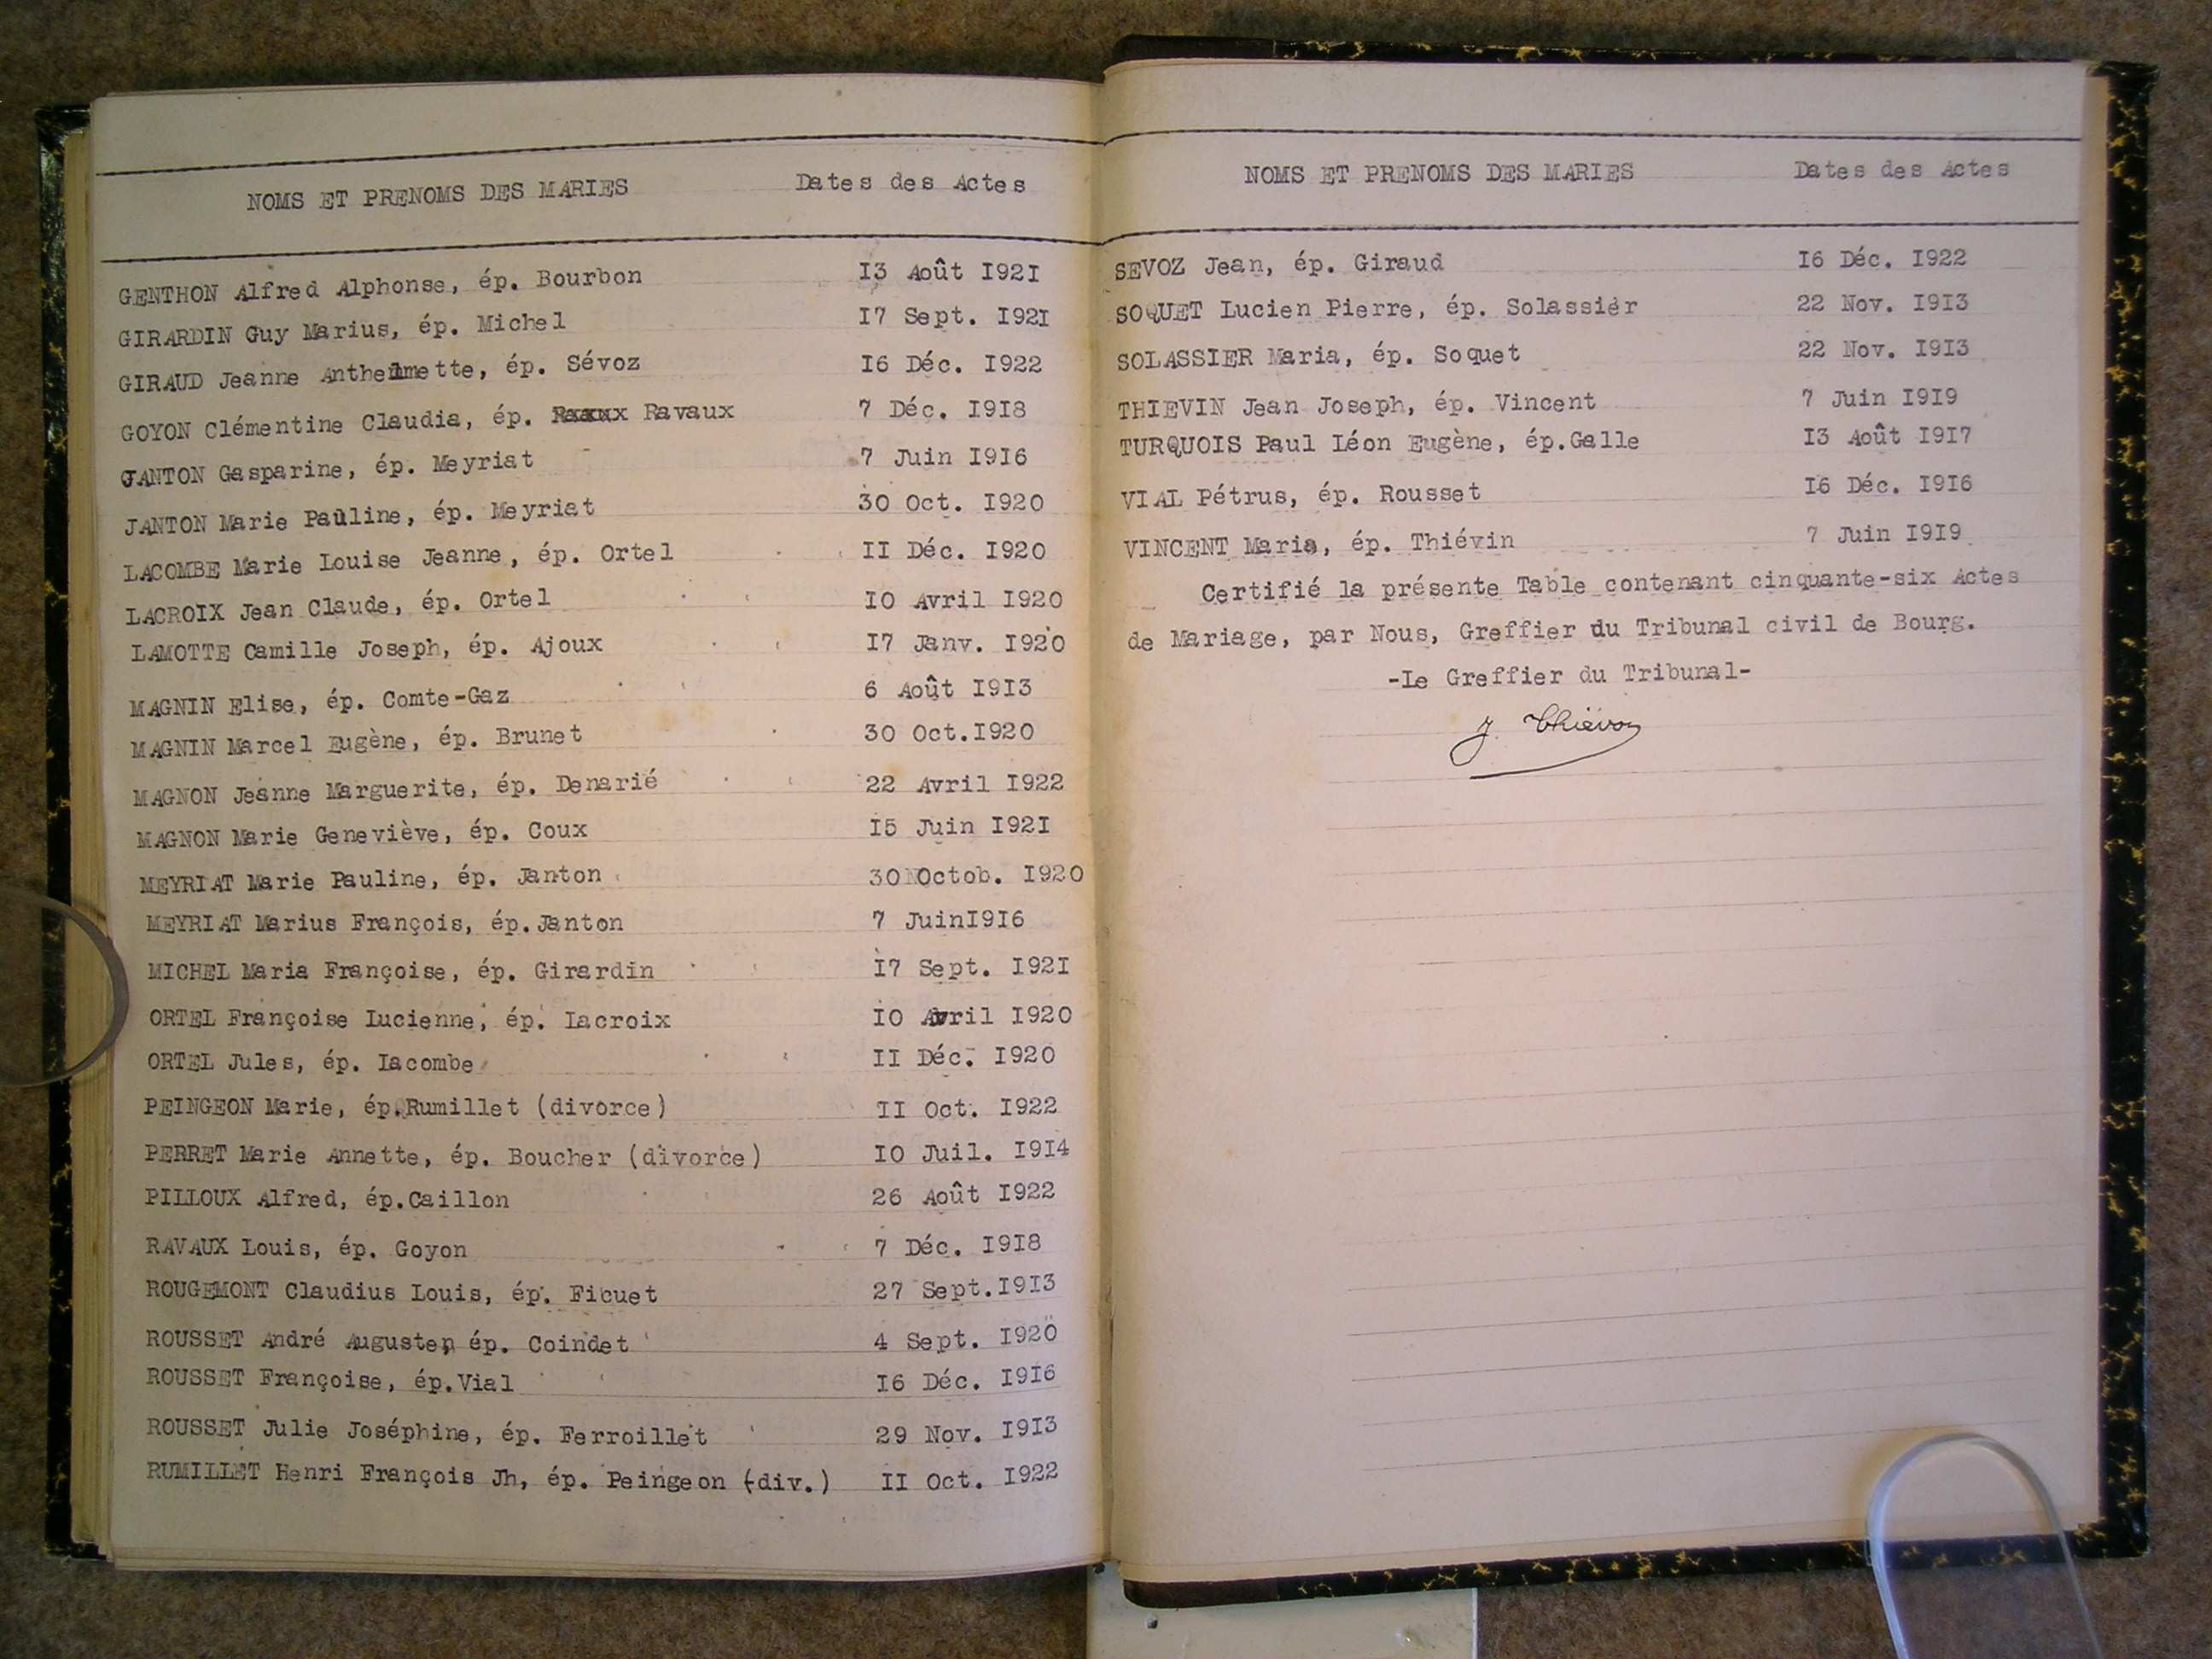 NOMS ET PRENOMS DES MARIES Dates des Actes
GENTHON Alfred Alphonse, ép. Bourbon I3 Août I92I
GIRARDIN Guy Marius, ép. Michel I7 Sept. I92I
GIRAUD Jeanne Anthelmette, ép. Sévoz I6 Déc. I922
GOYON Clémentine Claudia, ép. Ravaux 7 Déc. I9I8
JANTON Gasparine, ép. Meyriat 7 Juin I9I6
JANTON Marie Pauline, ép. Meyriat 30 Oct. I920
LACOMBE Marie Louise Jeanne, ép. Ortel II Déc. I920
LACROIX Jean Claude, ép. Ortel IO Avril I920
LAMOTTE Camille Joseph, ép. Ajoux I7 Janv. I920
MAGNIN Elise, ép. Comte-Gaz 6 Août I9I3
MAGNIN Marcel Eugène, ép. Brunet 30 Oct.I920
MAGNON Jeanne Marguerite, ép. Denarié 22 Avril I922
MAGNON Marie Geneviève, ép. Coux I5 Juin I92I
MEYRIAT Marie Pauline, ép. Janton 30 Octob. I920
MEYRIAT Marius François, ép.Janton 7 JuinI9I6
MICHEL Maria Françoise, ép. Girardin I7 Sept. I92I
ORTEL Françoise Lucienne, ép. Lacroix IO Avril I920
ORTEL Jules, ép. Lacombe II Déc. I920
PEINGEON Marie, ép.Rumillet (divorce) II Oct. I922
PERRET Marie Annette, ép. Boucher (divorce) IO Juil. I9I4
PILLOUX Alfred, ép.Caillon 26 Août I922
RAVAUX Louis, ép. Goyon 7 Déc. I9I8
ROUGEMONT Claudius Louis, ép. Ficuet 27 Sept.I9I3
ROUSSET André Auguste, ép. Coindet 4 Sept. I920
ROUSSET Françoise, ép.Vial I6 Déc. I9I6
ROUSSET Julie Joséphine, ép. Ferroillet 29 Nov. I9I3
RUMILLET Henri François Jh, ép. Peingeon (div.) II Oct. I922
NOMS ET PRENOMS DES MARIES Dates des Actes
SEVOZ Jean, ép. Giraud I6 Déc. I922
SOQUET Lucien Pierre, ép. Solassier 22 Nov. I9I3
SOLASSIER Maria, ép. Soquet 22 Nov. I9I3
THIEVIN Jean Joseph, ép. Vincent 7 Juin I9I9
TURQUOIS Paul Léon Eugène, ép.Galle I3 Août I9I7
VIAL Pétrus, ép. Rousset I6 Déc. I9I6
VINCENT Maria, ép. Thiévin 7 Juin I9I9
Certifié la présente Table contenant cinquante-six Actes
de Mariage, par Nous, Greffier du Tribunal civil de Bourg.
-Le Greffier du Tribunal-